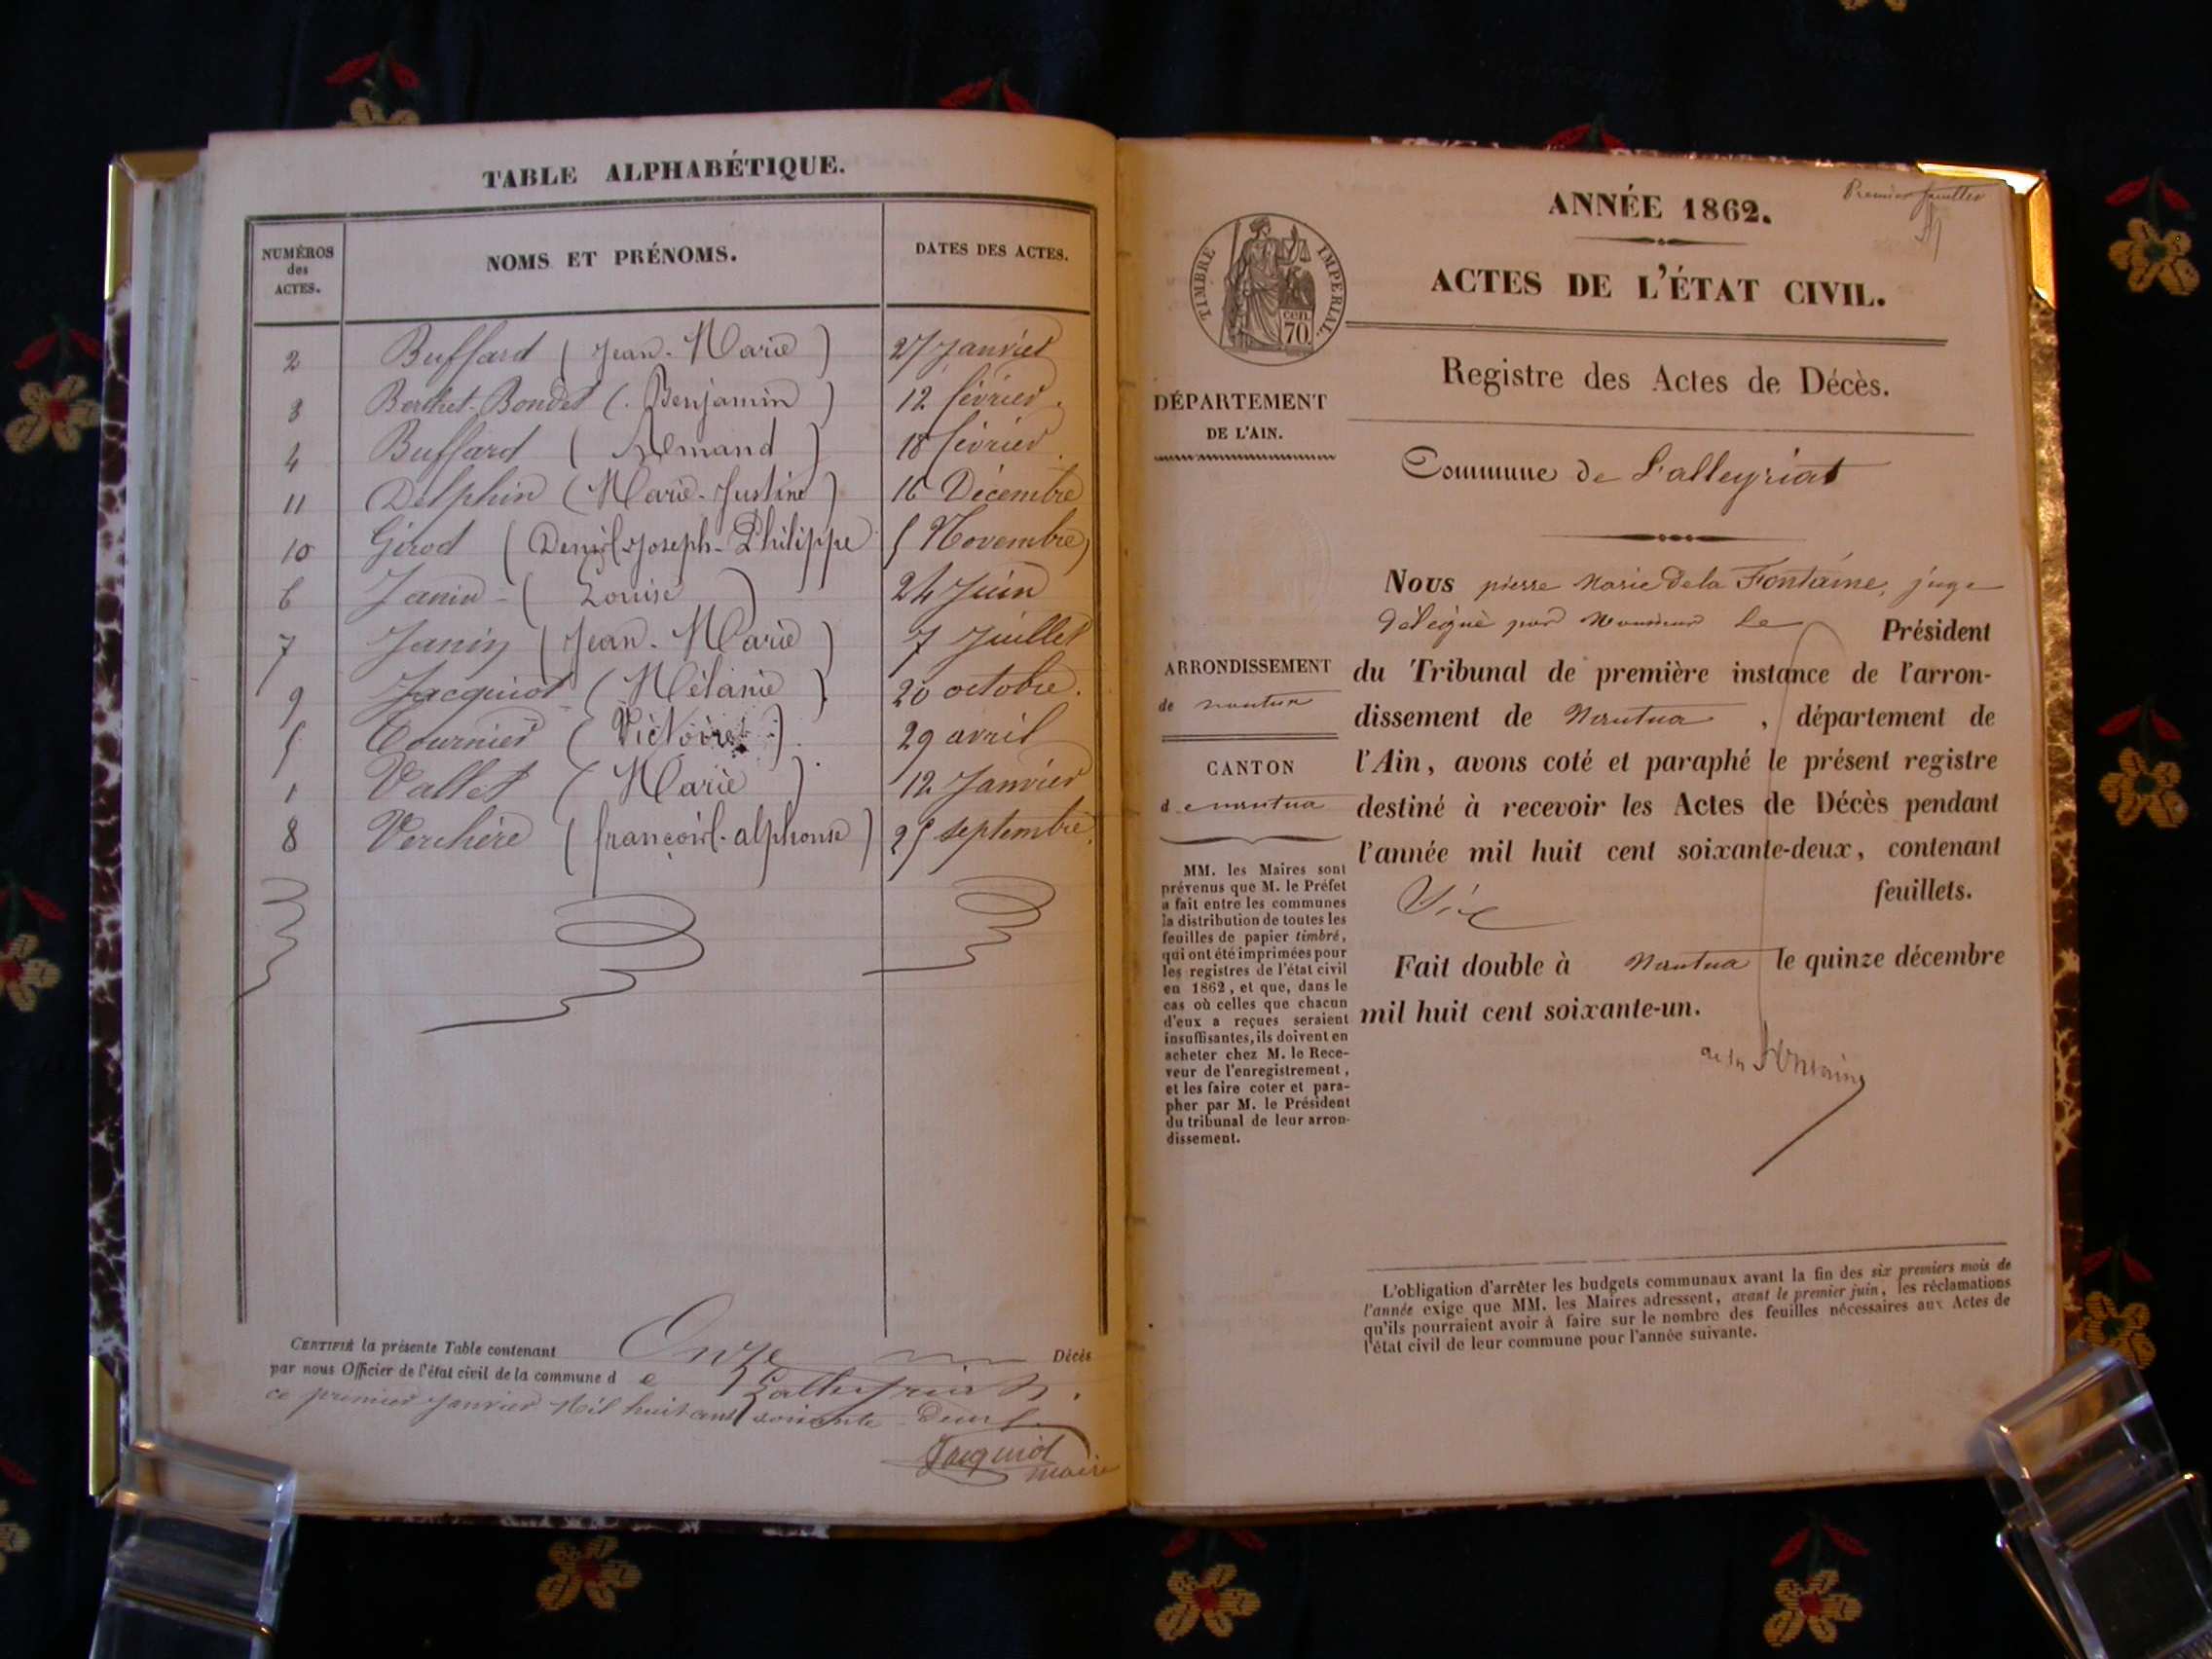 TABLE ALPHABÉTIQUE.
NUMÉROS des ACTES.
NOMS ET PRÉNOMS.
DATES DES ACTES.
2 Buffard (Jean-Marie) 27 Janvier
3 Berthet-Bondet (Benjamin) 12 février.
4 Buffard (Armand) 18 février.
11 Delphin (Marie-Justine) 16 Décembre
10 Girod (Denis-Joseph-Philippe) 5 Novembre
6 Janin (Louise) 24 Juin
7 Janin (Jean-Marie) 7 Juillet
9 Jacquiot (Mélanie) 20 octobre.
5 Tournier (Victoire). 29 avril
1 Vallet (Marie). 12 Janvier
8 Verchère (françois-alphonse) 25 septembre.
CERTIFIÉ la présente Table contenant Onze Décès
par nous Officier de l'état civil de la commune de Lalleyriat.
ce premier Janvier Mil huit cent soixante-deux.
Jacquiot
maire
Premier feuillet
ANNÉE 1862.
ACTES DE L'ÉTAT CIVIL.
TIMBRE IMPÉRIAL.
70 cen.
Registre des Actes de Décès.
DÉPARTEMENT
DE L'AIN.
Commune de Lalleyriat
Nous pierre Marie De la Fontaine, juge
délégué par Monsieur Le Président
du Tribunal de première instance de l'arron-
dissement de Nantua, département de
l'Ain, avons coté et paraphé le présent registre
destiné à recevoir les Actes de Décès pendant
l'année mil huit cent soixante-deux, contenant
feuillets.
Fait double à Nantua le quinze décembre
mil huit cent soixante-un.
de la Fontaine
ARRONDISSEMENT
de nantua
CANTON
de nantua
MM. les Maires sont
prévenus que M. le Préfet
a fait entre les communes
la distribution de toutes les
feuilles de papier timbré,
qui ont été imprimées pour
les registres de l'état civil
en 1862, et que, dans le
cas où celles que chacun
d'eux a reçues seraient
insuffisantes, ils doivent en
acheter chez M. le Rece-
veur de l'enregistrement,
et les faire coter et para-
pher par M. le Président
du tribunal de leur arron-
dissement.
L'obligation d'arrêter les budgets communaux avant la fin des six premiers mois de
l'année exige que MM. les Maires adressent, avant le premier juin, les réclamations
qu'ils pourraient avoir à faire sur le nombre des feuilles nécessaires aux Actes de
l'état civil de leur commune pour l'année suivante.